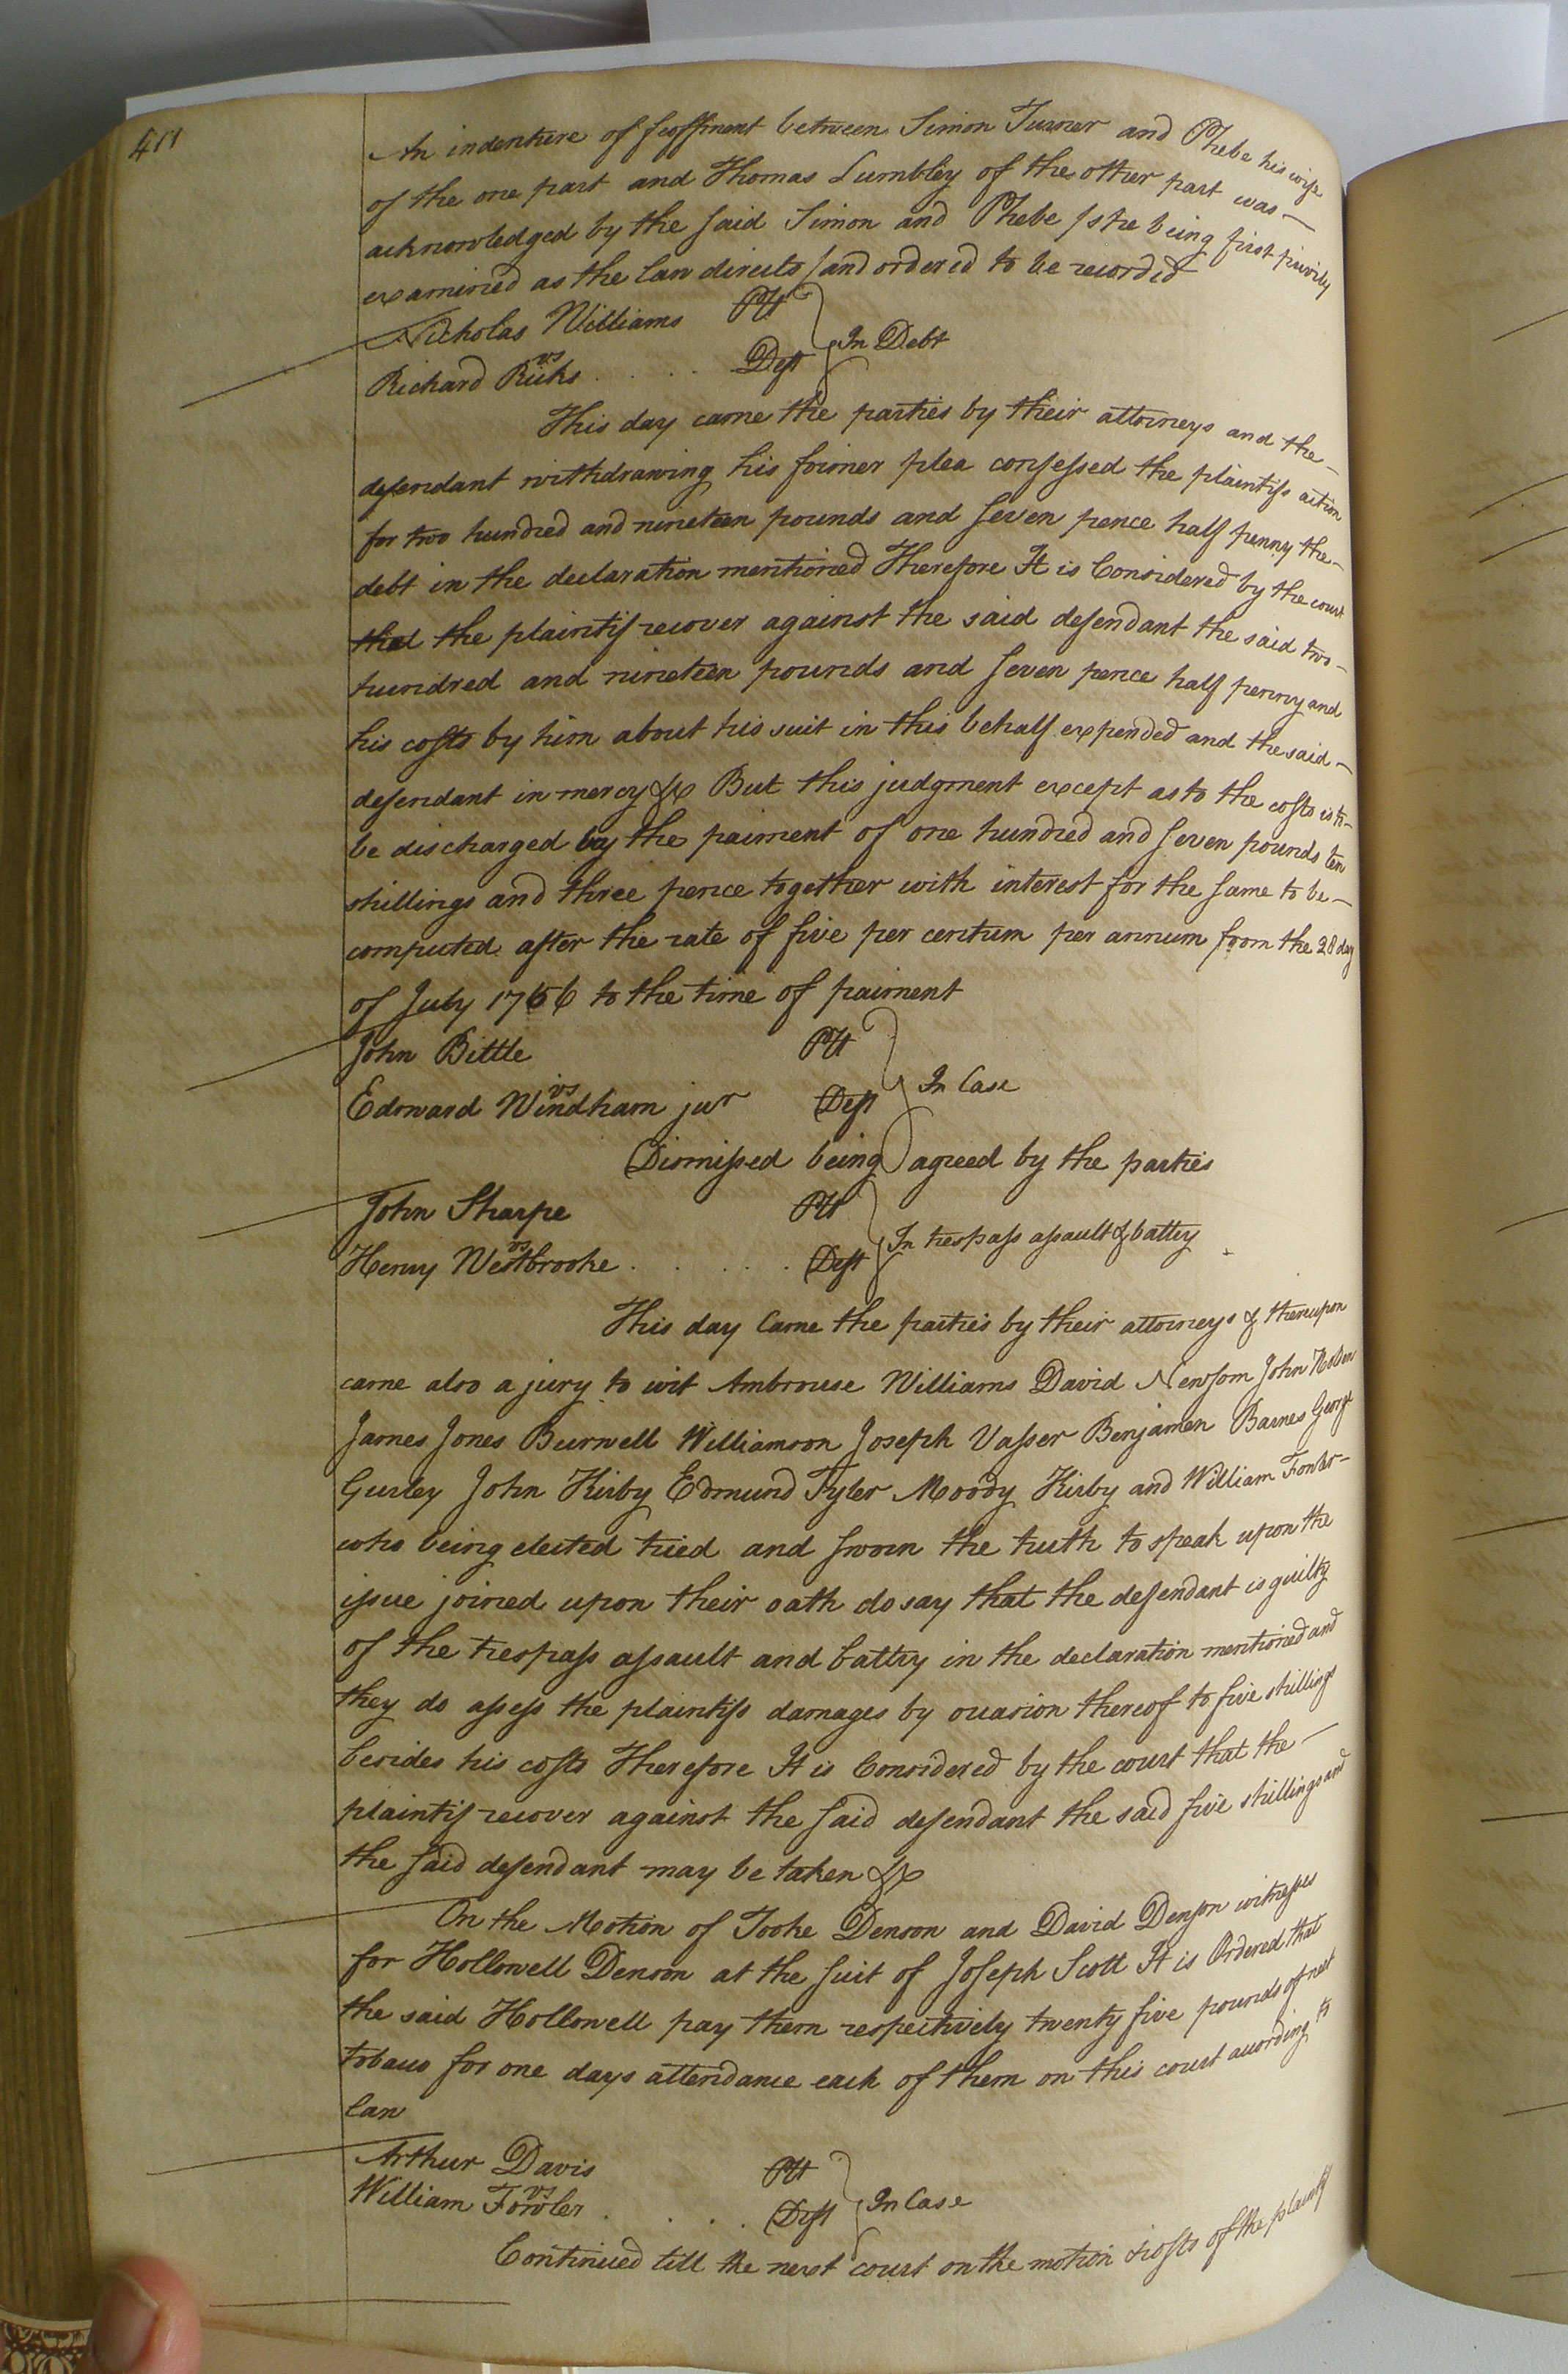 411
An indenture of feoffment between Simon Turner and Phebe his wife
of the one part and Thomas Lumbley of the other part was
acknowledged by the said Simon and Phebe (she being first privily
examined as the law directs) and ordered to be recorded
Nicholas Williams Plt
vs In Debt
Richard Ricks . . . . Deft
This day came the parties by their attorneys and the
defendant withdrawing his former plea confessed the plaintifs action
for two hundred and nineteen pounds and seven pence half penny the
debt in the declaration mentioned Therefore It is Considered by the court
that the plaintif recover against the said defendant the said two
hundred and nineteen pounds and seven pence half penny and
his costs by him about his suit in this behalf expended and the said
defendant in mercy &c But this judgment except as to the costs is to
be discharged by the paiment of one hundred and seven pounds ten
shillings and three pence together with interest for the same to be
computed after the rate of five per centum per annum from the 28 day
of July 1766 to the time of paiment
John Bittle Plt
vs In Case
Edward Windham junr Deft
Dismissed being agreed by the parties
John Sharpe Plt
vs In trespass assault & battry
Henry Westbrooke . . . . . Deft
This day Came the parties by their attorneys & thereupon
came also a jury to wit Ambrouse Williams David Newsom John
James Jones Burwell Williamson Joseph Vasser Benjamen Barnes George
Gurley John Kirby Edmund Tyler Moody Kirby and William Fowler
who being elected tried and sworn the truth to speak upon the
issue joined upon their oath do say that the defendant is guilty
of the trespass assault and battry in the declaration mentioned and
they do assess the plaintifs damages by occasion thereof to five shillings
besides his costs Therefore It is Considered by the court that the
plaintif recover against the said defendant the said five shillings and
the said defendant may be taken &c
On the Motion of Tooke Denson and David Denson witnesses
for Hollowell Denson at the suit of Joseph Scott It is Ordered that
the said Hollowell pay them respectively twenty five pounds of nett
tobacco for one days attendance each of them on this court according to
law
Arthur Davis Plt
vs In Case
William Fowler . . . . Deft
Continued till the next court on the motion & costs of the plaintif